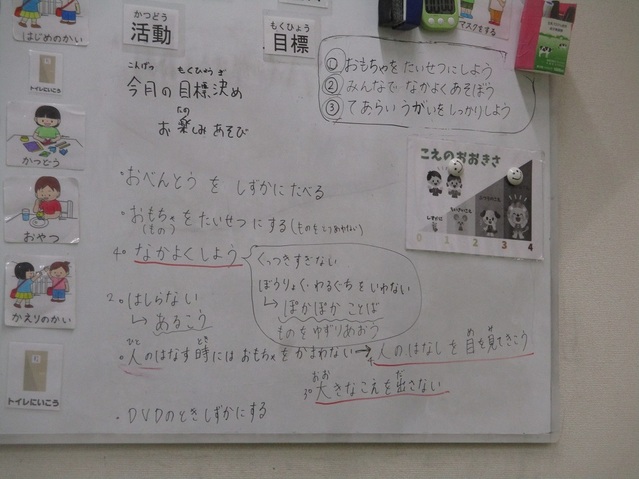 はじめのかい
トイレにいこう
かつどう
おやつ
かえりのかい
トイレにいこう
かつどう
活動
もくひょう
目標
マスクをする
こんげつ もくひょう ぎ
今月の目標決め
たの
お楽しみあそび
① おもちゃを たいせつにしよう
② みんなで なかよくあそぼう
③ てあらい うがいを しっかりしよう
こえのおおきさ
0 1 2 3 4
・おべんとう を しずかにたべる
・おもちゃ をたいせつ にする
(もの)
4。なかよくしよう
くっつきすぎない
ぼうりょく・わるぐちを いわない
↳ ぽかぽか ことば
ものをゆずりあおう
2。はしらない
↳ あるこう
ひと とき
。人のはなす時には おもちゃを かまわない→
め み
人のはなしを 目を見てきこう
おお だ
3。大きなこえを出さない
・DVDのとき しずかにする